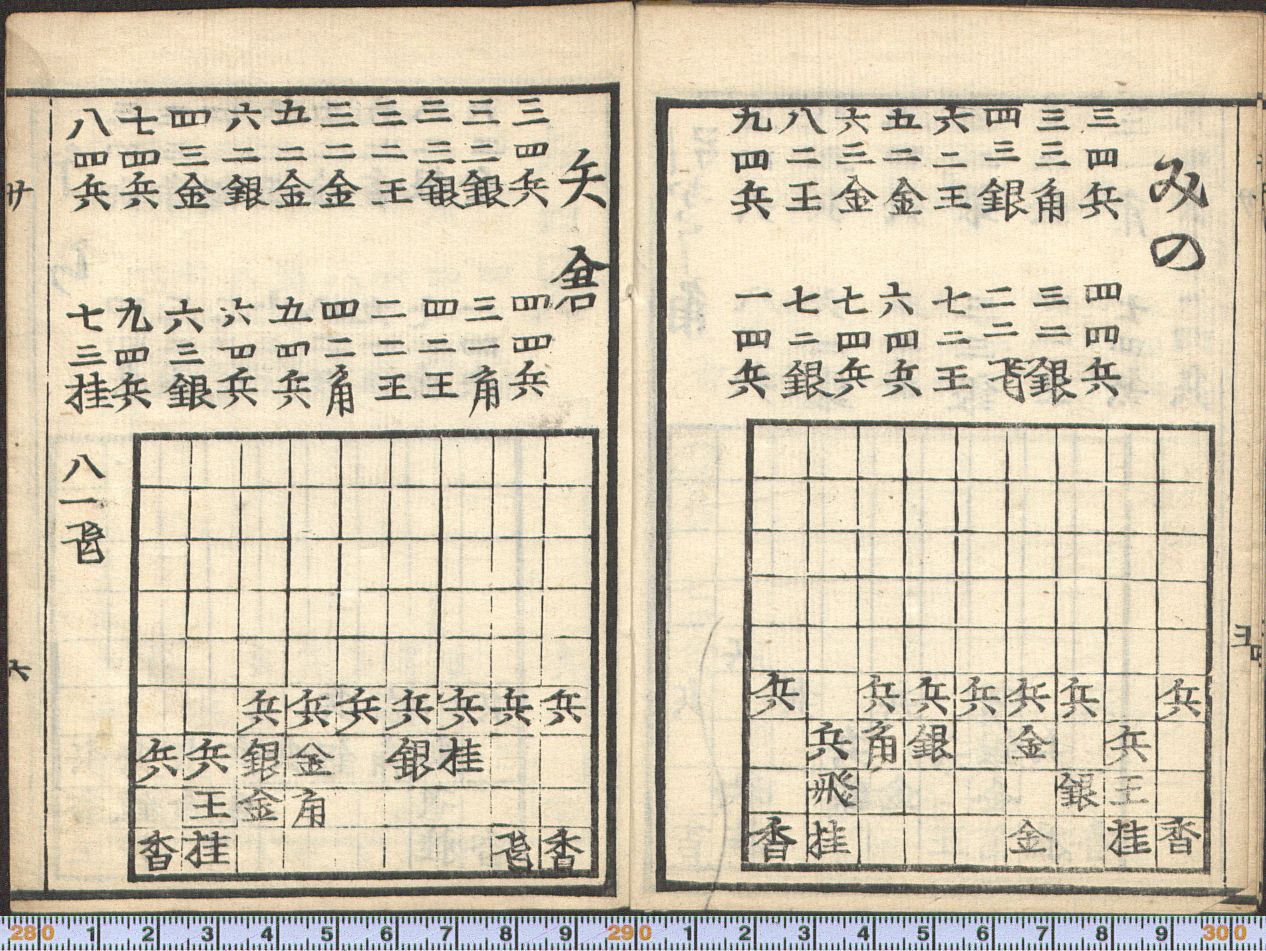 みの
三四兵　四四兵
三三角　三二銀
四三銀　二二飛
六二王　七二王
五二金　六四兵
六三金　七四兵
八二王　七二銀
九四兵　一四兵
兵兵兵兵兵兵兵
兵角銀金兵
飛銀王
香挂金挂香
矢倉
三四兵　四四兵
三二銀　三一角
三三銀　四二王
三二王　二二王
三二金　四二角
五二金　九四兵
六二銀　六四兵
四三金　六三銀
七四兵　九四兵
八四兵　七三挂
八一飛
兵兵兵兵兵兵兵
兵兵銀金銀挂
王金角
香挂飛香
六
280 1 2 3 4 5 6 7 8 9 290 1 2 3 4 5 6 7 8 9 300